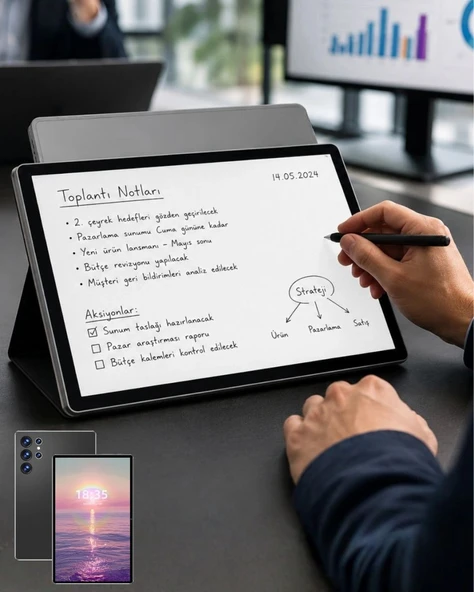 Toplantı Notları
14.05.2024
• 2. çeyrek hedefleri gözden geçirilecek
• Pazarlama sunumu Cuma gününe kadar
• Yeni ürün lansmanı - Mayıs sonu
• Bütçe revizyonu yapılacak
• Müşteri geri bildirimleri analiz edilecek
Aksiyonlar:
Sunum taslağı hazırlanacak
Pazar araştırması raporu
Bütçe kalemleri kontrol edilecek
Strateji
Ürün Pazarlama Satış
18:35